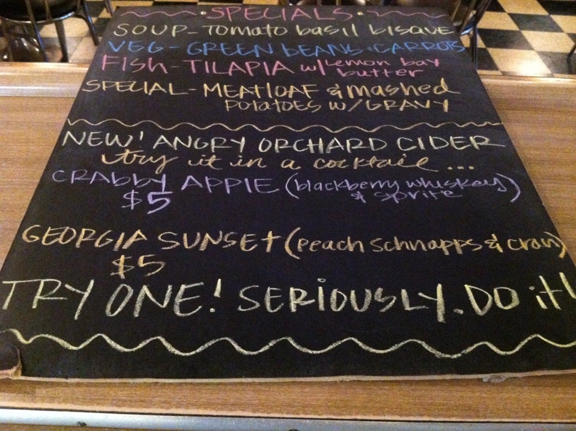 SPECIALS
SOUP-Tomato basil bisque
VEG-GREEN beans & CARROTS
FISH-TILAPIA w/Lemon bay
butter
SPECIAL-MEATLOAF & mashed
POTATOES W/GRAVY
NEW! ANGRY ORCHARD CIDER
try it in a cocktail ...
CRABBY APPLE (blackberry whiskey
& sprite)
$5
GEORGIA SUNSET (peach schnapps & cran)
$5
TRY ONE! SERIOUSLY. DO it!